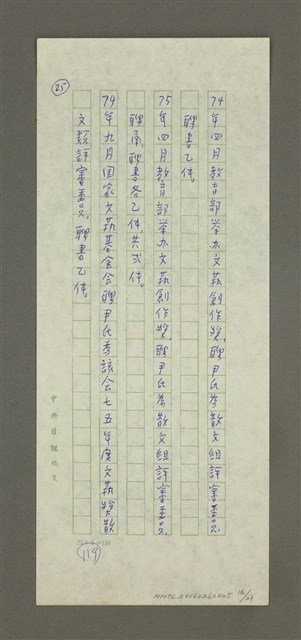 25
74年四月教育部举办文藝創作獎,聘尹氏為散文組評審委員
聘書乙件。
75年四月教育部举办文藝創作獎,聘尹氏為散文組評審委員
聘函,聘書各乙件,共弍件。
79年九月国家文藝基金会聘尹氏為該会七五年度文藝獎散
文類評審委员,聘書乙件。
中央日報稿紙
(119)
NMTL20160260225 16/23